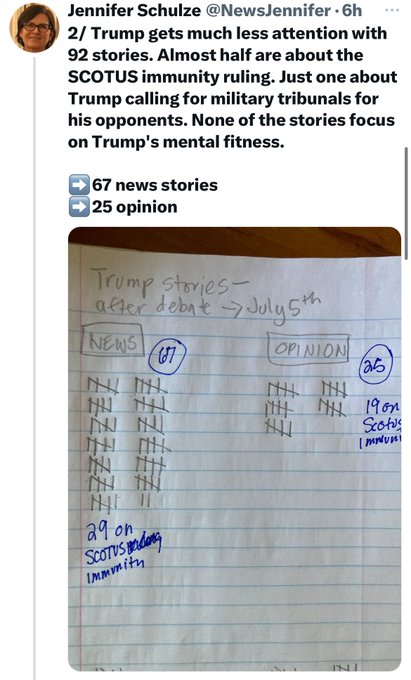 Jennifer Schulze @NewsJennifer · 6h
2/ Trump gets much less attention with
92 stories. Almost half are about the
SCOTUS immunity ruling. Just one about
Trump calling for military tribunals for
his opponents. None of the stories focus
on Trump's mental fitness.
➡️67 news stories
➡️25 opinion
Trump stories —
after debate → July 5th
NEWS
67
OPINION
25
19 on
Scotus
immuni
29 on
SCOTUS
immunity